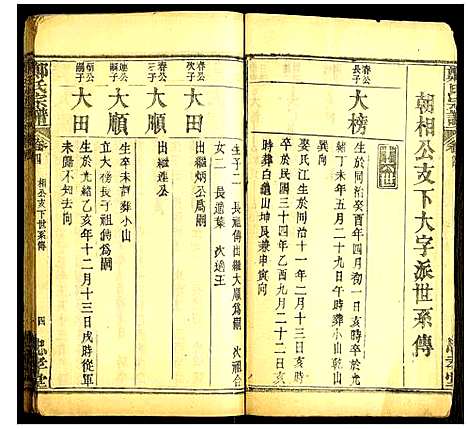 鄭氏宗譜
卷四
忠孝堂
朝相公支下大字派世系傳
春公長子
大榜
生於同治癸酉年四月初一日亥時卒於光
緒丁未年五月二十九日午時葬小山乾山
娶氏江生於同治十一年
卒於民國三十四年乙酉九月二十二日亥
時葬白龜山坤艮兼申寅向
生子二 長祖傳出繼大順爲嗣 次祖合
女二 長適葉 次適王
春公次子
大田
出繼炳公爲嗣
春公三子
大順
出繼蓮公
蓮公嗣子
大順
生卒未詳葬小山
立大榜長子祖傳爲嗣
炳公嗣子
大田
生於光緒乙亥年十二月十三日戌時從軍
未歸不知去向
鄭氏宗譜
卷四
相公支下世系傳
四
忠孝堂